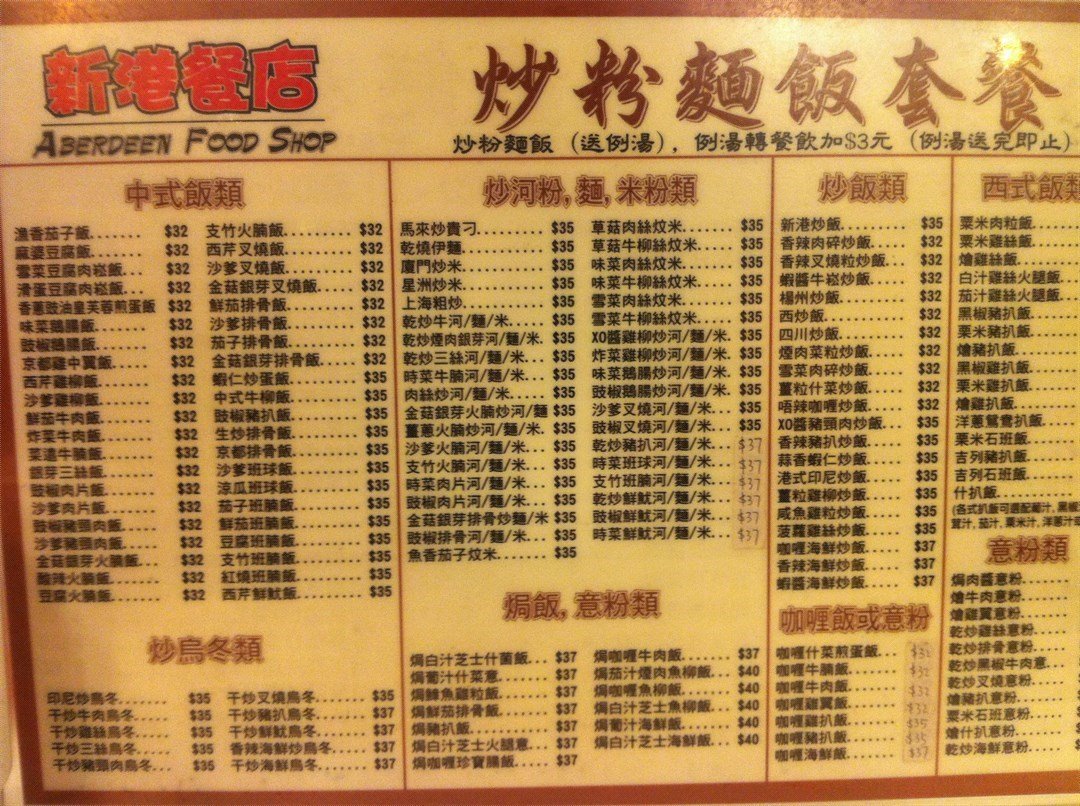 新港餐店
ABERDEEN FOOD SHOP
炒粉麵飯套餐
炒粉麵飯 (送例湯), 例湯轉餐飲加$3元 (例湯送完即止)
中式飯類
漁香茄子飯....... $32
麻婆豆腐飯....... $32
雪菜豆腐肉崧飯... $32
滑蛋豆腐肉崧飯... $32
香蔥豉油皇芙蓉煎蛋飯 $32
味菜鵝腸飯....... $32
豉椒鵝腸飯....... $32
京都雞中翼飯..... $32
西芹雞柳飯....... $32
沙爹雞柳飯....... $32
鮮茄牛肉飯....... $32
炸菜牛肉飯....... $32
菜遠牛腩飯....... $32
銀芽三絲飯....... $32
豉椒肉片飯....... $32
沙爹肉片飯....... $32
豉椒豬頸肉飯..... $32
沙爹豬頸肉飯..... $32
金菇銀芽火腩飯... $32
酸辣火腩飯....... $32
豆腐火腩飯....... $32
支竹火腩飯....... $32
西芹叉燒飯....... $32
沙爹叉燒飯....... $32
金菇銀芽叉燒飯... $32
鮮茄排骨飯....... $32
沙爹排骨飯....... $32
茄子排骨飯....... $32
金菇銀芽排骨飯... $32
蝦仁炒蛋飯....... $35
中式牛柳飯....... $35
豉椒豬扒飯....... $35
生炒排骨飯....... $35
京都排骨飯....... $35
沙爹班球飯....... $35
涼瓜班球飯....... $35
茄子班腩飯....... $35
鮮茄班腩飯....... $35
豆腐班腩飯....... $35
支竹班腩飯....... $35
紅燒班腩飯....... $35
西芹鮮魷飯....... $35
炒烏冬類
印尼炒烏冬....... $35
干炒牛肉烏冬..... $35
干炒雞絲烏冬..... $35
干炒三絲烏冬..... $35
干炒豬頸肉烏冬... $35
干炒叉燒烏冬..... $35
干炒豬扒烏冬..... $37
干炒鮮魷烏冬..... $37
香辣海鮮炒烏冬... $37
干炒海鮮烏冬..... $37
炒河粉, 麵, 米粉類
馬來炒貴刁....... $35
乾燒伊麵......... $35
廈門炒米......... $35
星洲炒米......... $35
上海粗炒......... $35
乾炒牛河/麵/米... $35
乾炒煙肉銀芽河/麵/米. $35
乾炒三絲河/麵/米... $35
時菜牛腩河/麵/米... $35
肉絲炒河/麵/米... $35
金菇銀芽火腩炒河/麵 $35
薑蔥火腩炒河/麵/米. $35
沙爹火腩河/麵/米... $35
支竹火腩河/麵/米... $35
時菜肉片河/麵/米... $35
豉椒肉片河/麵/米... $35
金菇銀芽排骨炒麵/米 $35
豉椒排骨河/麵/米... $35
魚香茄子炆米..... $35
草菇肉絲炆米..... $35
草菇牛柳絲炆米... $35
味菜肉絲炆米..... $35
味菜牛柳絲炆米... $35
雪菜肉絲炆米..... $35
雪菜牛柳絲炆米... $35
XO醬雞柳炒河/麵/米. $35
炸菜雞柳炒河/麵/米. $35
味菜鵝腸炒河/麵/米. $35
豉椒鵝腸炒河/麵/米. $35
沙爹叉燒河/麵/米... $35
豉椒叉燒河/麵/米... $35
乾炒豬扒河/麵/米... $37
時菜班球河/麵/米... $37
支竹班腩河/麵/米... $37
乾炒鮮魷河/麵/米... $37
豉椒鮮魷河/麵/米... $37
時菜鮮魷河/麵/米... $37
焗飯, 意粉類
焗白汁芝士什菌飯... $37
焗葡汁什菜意..... $37
焗鯪魚雞粒飯..... $37
焗鮮茄排骨飯..... $37
焗豬扒飯......... $37
焗白汁芝士火腿意. $37
焗咖喱珍寶腸飯... $37
焗咖喱牛肉飯..... $37
焗茄汁煙肉魚柳飯. $40
焗咖喱魚柳飯..... $40
焗白汁芝士魚柳飯. $40
焗葡汁海鮮飯..... $40
焗白汁芝士海鮮飯. $40
炒飯類
新港炒飯......... $35
香辣肉碎炒飯..... $32
香辣叉燒粒炒飯... $32
蝦醬牛崧炒飯..... $32
楊州炒飯......... $32
西炒飯........... $32
四川炒飯......... $32
煙肉菜粒炒飯..... $32
雪菜肉碎炒飯..... $32
薑粒什菜炒飯..... $32
唔辣咖喱炒飯..... $32
XO醬豬頸肉炒飯... $35
香辣豬扒炒飯..... $35
蒜香蝦仁炒飯..... $35
港式印尼炒飯..... $35
薑粒雞柳炒飯..... $35
咸魚雞粒炒飯..... $35
菠蘿雞絲炒飯..... $35
咖喱海鮮炒飯..... $37
香辣海鮮炒飯..... $37
蝦醬海鮮炒飯..... $37
咖喱飯或意粉
咖喱什菜煎蛋飯... $32
咖喱牛腩飯....... $32
咖喱牛肉飯....... $32
咖喱雞翼飯....... $32
咖喱雞扒飯....... $35
咖喱豬扒飯....... $35
咖喱海鮮飯....... $37
西式飯類
粟米肉粒飯.......
粟米雞絲飯.......
燴雞絲飯.........
白汁雞絲火腿飯...
茄汁雞絲火腿飯...
黑椒豬扒飯.......
粟米豬扒飯.......
燴豬扒飯.........
黑椒雞扒飯.......
粟米雞扒飯.......
燴雞扒飯.........
洋蔥鴛鴦扒飯.....
粟米石班飯.......
吉列豬扒飯.......
吉列石班飯.......
什扒飯...........
(各式扒飯可選配葡汁, 黑椒
茸汁, 茄汁, 粟米汁, 洋蔥汁
意粉類
焗肉醬意粉.......
燴牛肉意粉.......
燴雞翼意粉.......
乾炒雞絲意粉.....
乾炒排骨意粉.....
乾炒黑椒牛肉意...
乾炒叉燒意粉.....
燴豬扒意粉.......
粟米石班意粉.....
燴什扒意粉.......
乾炒海鮮意粉.....